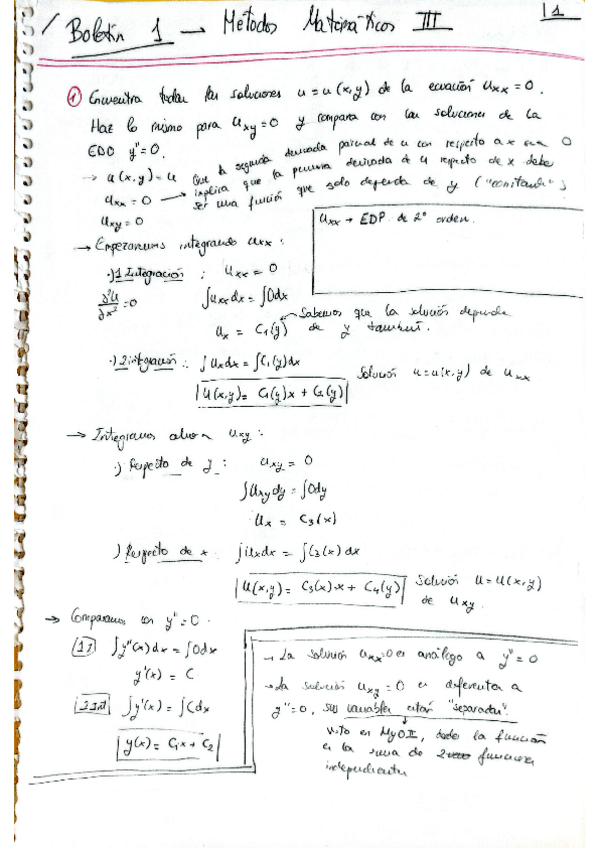 Boletín 1 → Métodos Matemáticos III
1
① Encuentra todas las soluciones u = u(x,y) de la ecuación Uxx = 0.
Haz lo mismo para Uxy = 0 y compara con las soluciones de la
EDO y'' = 0.
→ u(x,y) = u
Uxx = 0 →
Uxy = 0
Que la segunda derivada parcial de u con respecto a x sea 0
implica que la primera derivada de u respecto de x debe
ser una función que solo dependa de y ("constante")
Uxx → EDP de 2º orden.
→ Empezaremos integrando Uxx :
·) 1 Integración : Uxx = 0
∂²u/∂x² = 0
∫Uxx dx = ∫0dx
Ux = C1(y) ← Sabemos que la solución depende
de y también.
·) 2 integración : ∫Ux dx = ∫C1(y) dx
U(x,y) = C1(y)x + C2(y)
Solución u=u(x,y) de Uxx
→ Integramos ahora Uxy :
·) Respecto de y : Uxy = 0
∫Uxy dy = ∫0dy
Ux = C3(x)
·) Respecto de x : ∫Ux dx = ∫C3(x) dx
U(x,y) = C3(x)·x + C4(y)
Solución U=U(x,y)
de Uxy.
→ Comparamos con y'' = 0.
1 I ∫y''(x) dx = ∫0dx
y'(x) = C
2 Int ∫y'(x) = ∫C dx
y(x) = C1x + C2
→ La solución Uxx=0 es análogo a y'' = 0
→ La solución Uxy = 0 es diferente a
y''=0, sus variables están "separadas".
visto en MyO II, donde la función
es la suma de 2 funciones
independientes